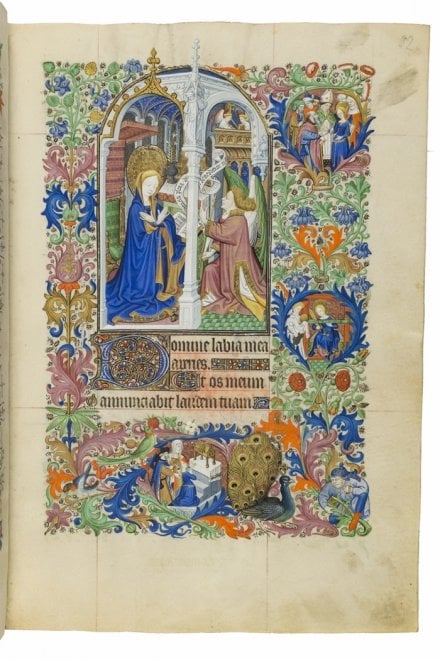 Domine labia mea
aperies. Et os meum
annunciabit laudem tuam